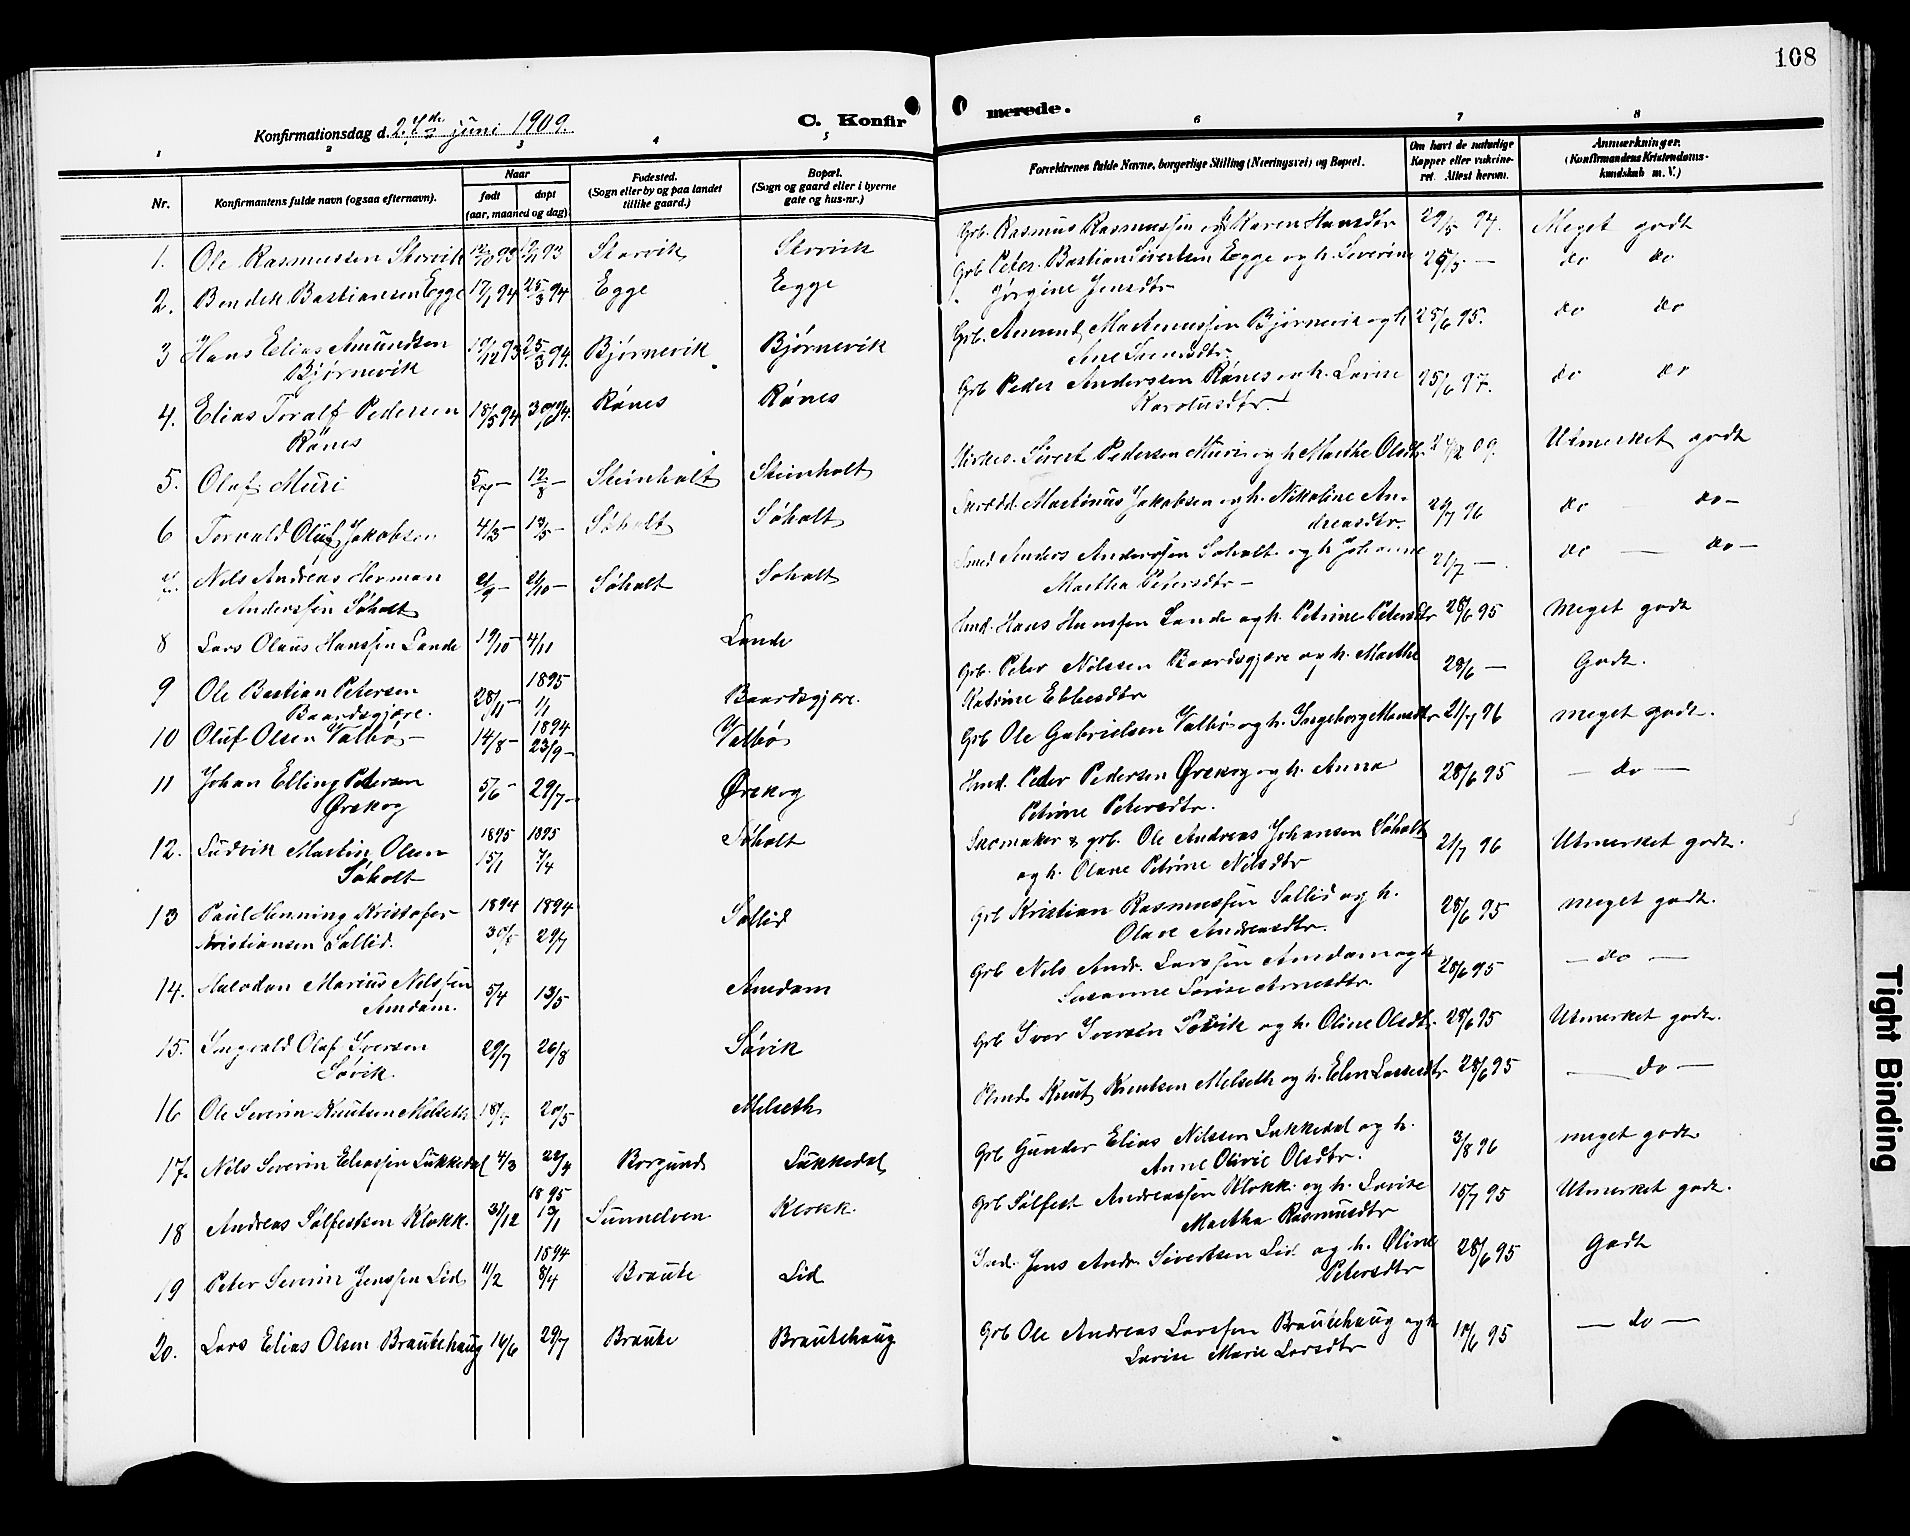 108
Konfirmationsdag d. 27de juni 1909.
C. Konfir
merede.
1 2 3 4 5
6 7 8
Nr.
Konfirmantens fulde navn (ogsaa efternavn).
Naar
født
døpt
(aar, maaned og dag)
Fødested.
(Sogn eller by og paa landet
tillike gaard.)
Bopæl.
(Sogn og gaard eller i byerne
gate og hus-nr.)
Forældrenes fulde Navne, borgerlige Stilling (Næringsvei) og Bopæl.
Om havt de naturlige
Kopper eller vakcine-
ret. Attest herom.
Anmærkninger.
(Konfirmandens Kristendoms-
kundskab m. V.)
1. Ole Rasmussen Storvik Storvik Storvik
Grb. Rasmus Rasmussen og Karen Hansdtr 29/5 94. Meget godt
2. Bendik Bastiansen Egge 17/1 94 25/3 94 Egge Egge
Grb Peter Bastian Sivertsen Egge og h. Severine 25/5 — do do
Jørgine Jensdtr
3 Hans Elias Amundsen 19/12 93 25/3 94 Bjørnevik Bjørnevik
Bjørnevik
Grb. Amund Martinussen Bjørnevik og h 25/6 95. do do
Ane Iversdtr.
4. Elias Toralf Pedersen 18/5 94 Rönes Rönes
Rönes
Grb Peder Andersen Rönes og h. Lovise 25/6 97. do do
Karolusdtr.
5. Olaf Muri 5/7 — 12/8 — Steinholt Steinholt
Kirkes. Sivert Pedersen Muri og h Marthe Olsdtr. 09. Utmerket godt
6 Torvald Oluf Jakobsen 4/3 — 13/5 — Søholt Søholt
Skrædd. Martinus Jakobsen og h. Nikoline An- 21/7 96 do — do —
dreasdtr.
7. Nils Andreas Herman 2/9 — 21/10 — Søholt Søholt
Anderssen Søholt
Smed Anders Anderssen Søholt og h. Johanne 21/7 —. do — do —
Martha Petersdtr —
8 Lars Olaus Hanssen Lande 19/10 4/11 Lande
Hmd. Hans Hanssen Lande og h. Petrine Petersdtr 28/6 95 Meget godt
9 Ole Bastian Petersen 28/11 — 1895 1/1 Baardsgjære.
Baardsgjære.
Grb. Peter Nilssen Baardsgjære og h. Marthe 28/6 — Godt.
Katrine Ebbesdtr
10 Oluf Olsen Valbø — 14/8 — 1894 23/9 — Valbø
Grb Ole Gabrielsen Valbø og h. Ingeborg Hansdtr 21/7 96 meget godt.
11 Johan Elling Petersen 5/6 — 29/7 — Ørskog
Ørskog
Hmd. Peter Pedersen Ørskog og h. Anna 28/6 95 — do —
Petrine Petersdtr.
12. Ludvik Martin Olsen 1895 15/1 1895 7/4 Søholt
Søholt
Skomaker & grb. Ole Andreas Johansen Søholt 21/7 96 Utmerket godt.
og h. Olave Petrine Nilsdtr
13 Paul Henning Kristofer 1894 1894 29/7 Sollid
Kristiansen Sollid.
Grb Kristian Rasmussen Sollid og h. 28/6 95 meget godt.
Olave Andreasdtr.
14. Halvdan Marius Nilssen 5/4 13/5 Amdam
Amdam.
Grb Nils Andr. Larssen Amdam og h 28/6 95 — do —
Susanne Lovise Arnesdtr.
15. Ingvald Olaf Iversen 29/7 26/8 Søvik
Søvik.
Grb Iver Iversen Søvik og h. Oline Olsdtr. 28/6 95 Utmerket godt.
16 Ole Severin Knutsen Melseth 20/5 Melseth
Knut Knutsen Melseth og h. Elen Larsesdtr 28/6 95 — do —
17. Nils Severin Eliassen Lukkedal 4/3 22/4 Borgund Lukkedal
Grb Gunder Elias Nilssen Lukkedal og h. 3/8 96 meget godt
Anne Olivie Olsdtr.
18 Andreas Sølfestsen Klokk. 31/12 1895 13/1 Sunnelven Klokk.
Grb Sølfest Andreassen Klokk. og h. Lovise 15/7 95 Utmerket godt.
Martha Rasmusdtr
19 Peter Severin Jenssen Lid 11/2 1894 8/4 Braute Lid
Jens Andr. Sivertsen Lid og h. Oline 28/6 95 Godt
Petersdtr
20. Lars Elias Olsen Brautehaug 16/6 29/7 Braute Brautehaug
Grb Ole Andreas Larssen Brautehaug og h 95 — do —
Lovise Marie Larsdtr
Tight Binding